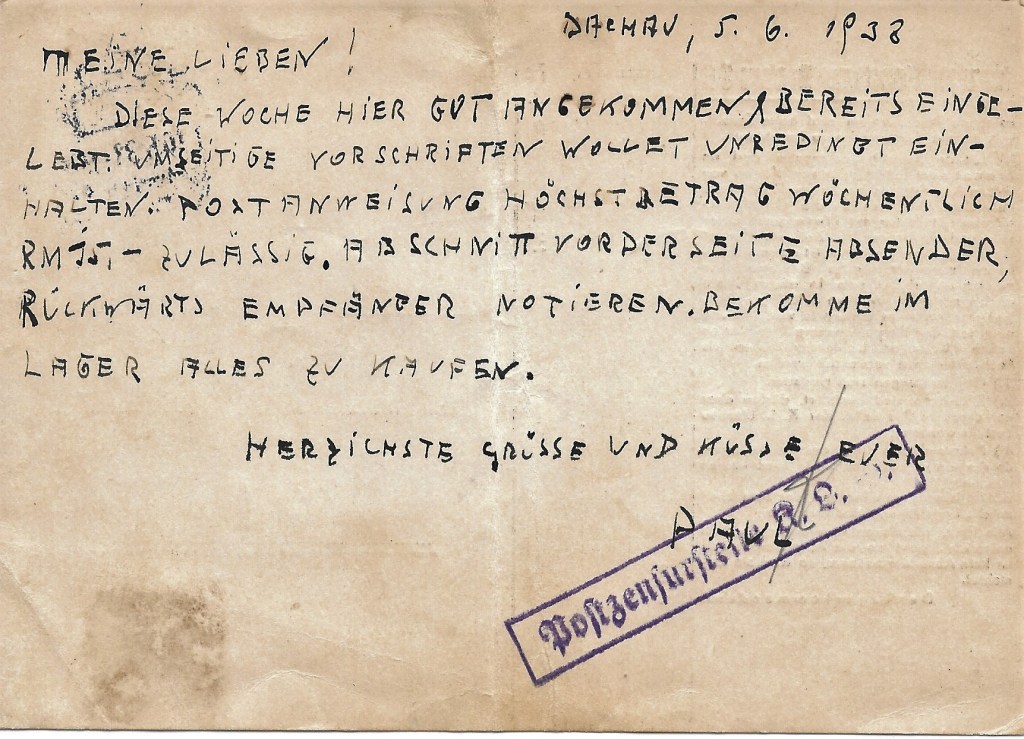 DACHAU, 5. 6. 1938
MEINE LIEBEN!
DIESE WOCHE HIER GUT ANGEKOMMEN & BEREITS EINGE-
LEBT. UMSEITIGE VORSCHRIFTEN WOLLET UNBEDINGT EIN-
HALTEN. POSTANWEISUNG HÖCHSTBETRAG WÖCHENTLICH
RM 15,- ZULÄSSIG. ABSCHNITT VORDERSEITE ABSENDER,
RÜCKWÄRTS EMPFÄNGER NOTIEREN. BEKOMME IM
LAGER ALLES ZU KAUFEN.
HERZICHSTE GRÜSSE UND KÜSSE EUER
PAUL
Postzensurstelle K. L.